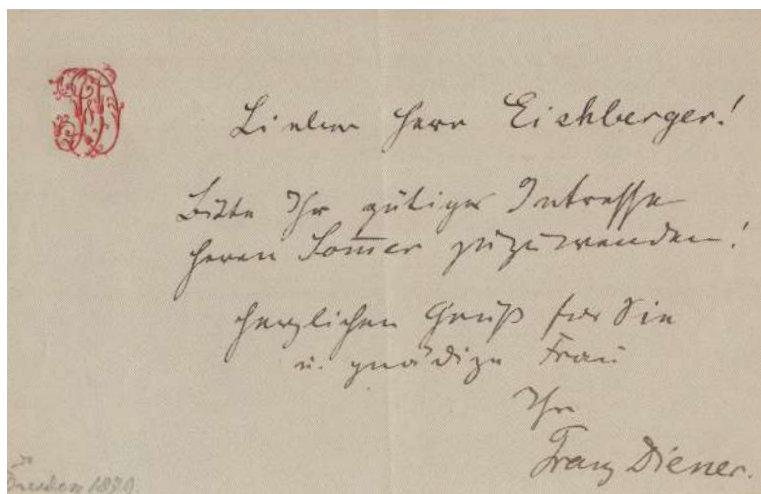 Lieber Herr Eichberger!
Bitte Ihr gütiges Intresse
Herrn Som̅er zuzuwenden!
Herzlichen Gruß für Sie
u. gnädige Frau
Ihr
Franz Diener.
Dresden 1879.